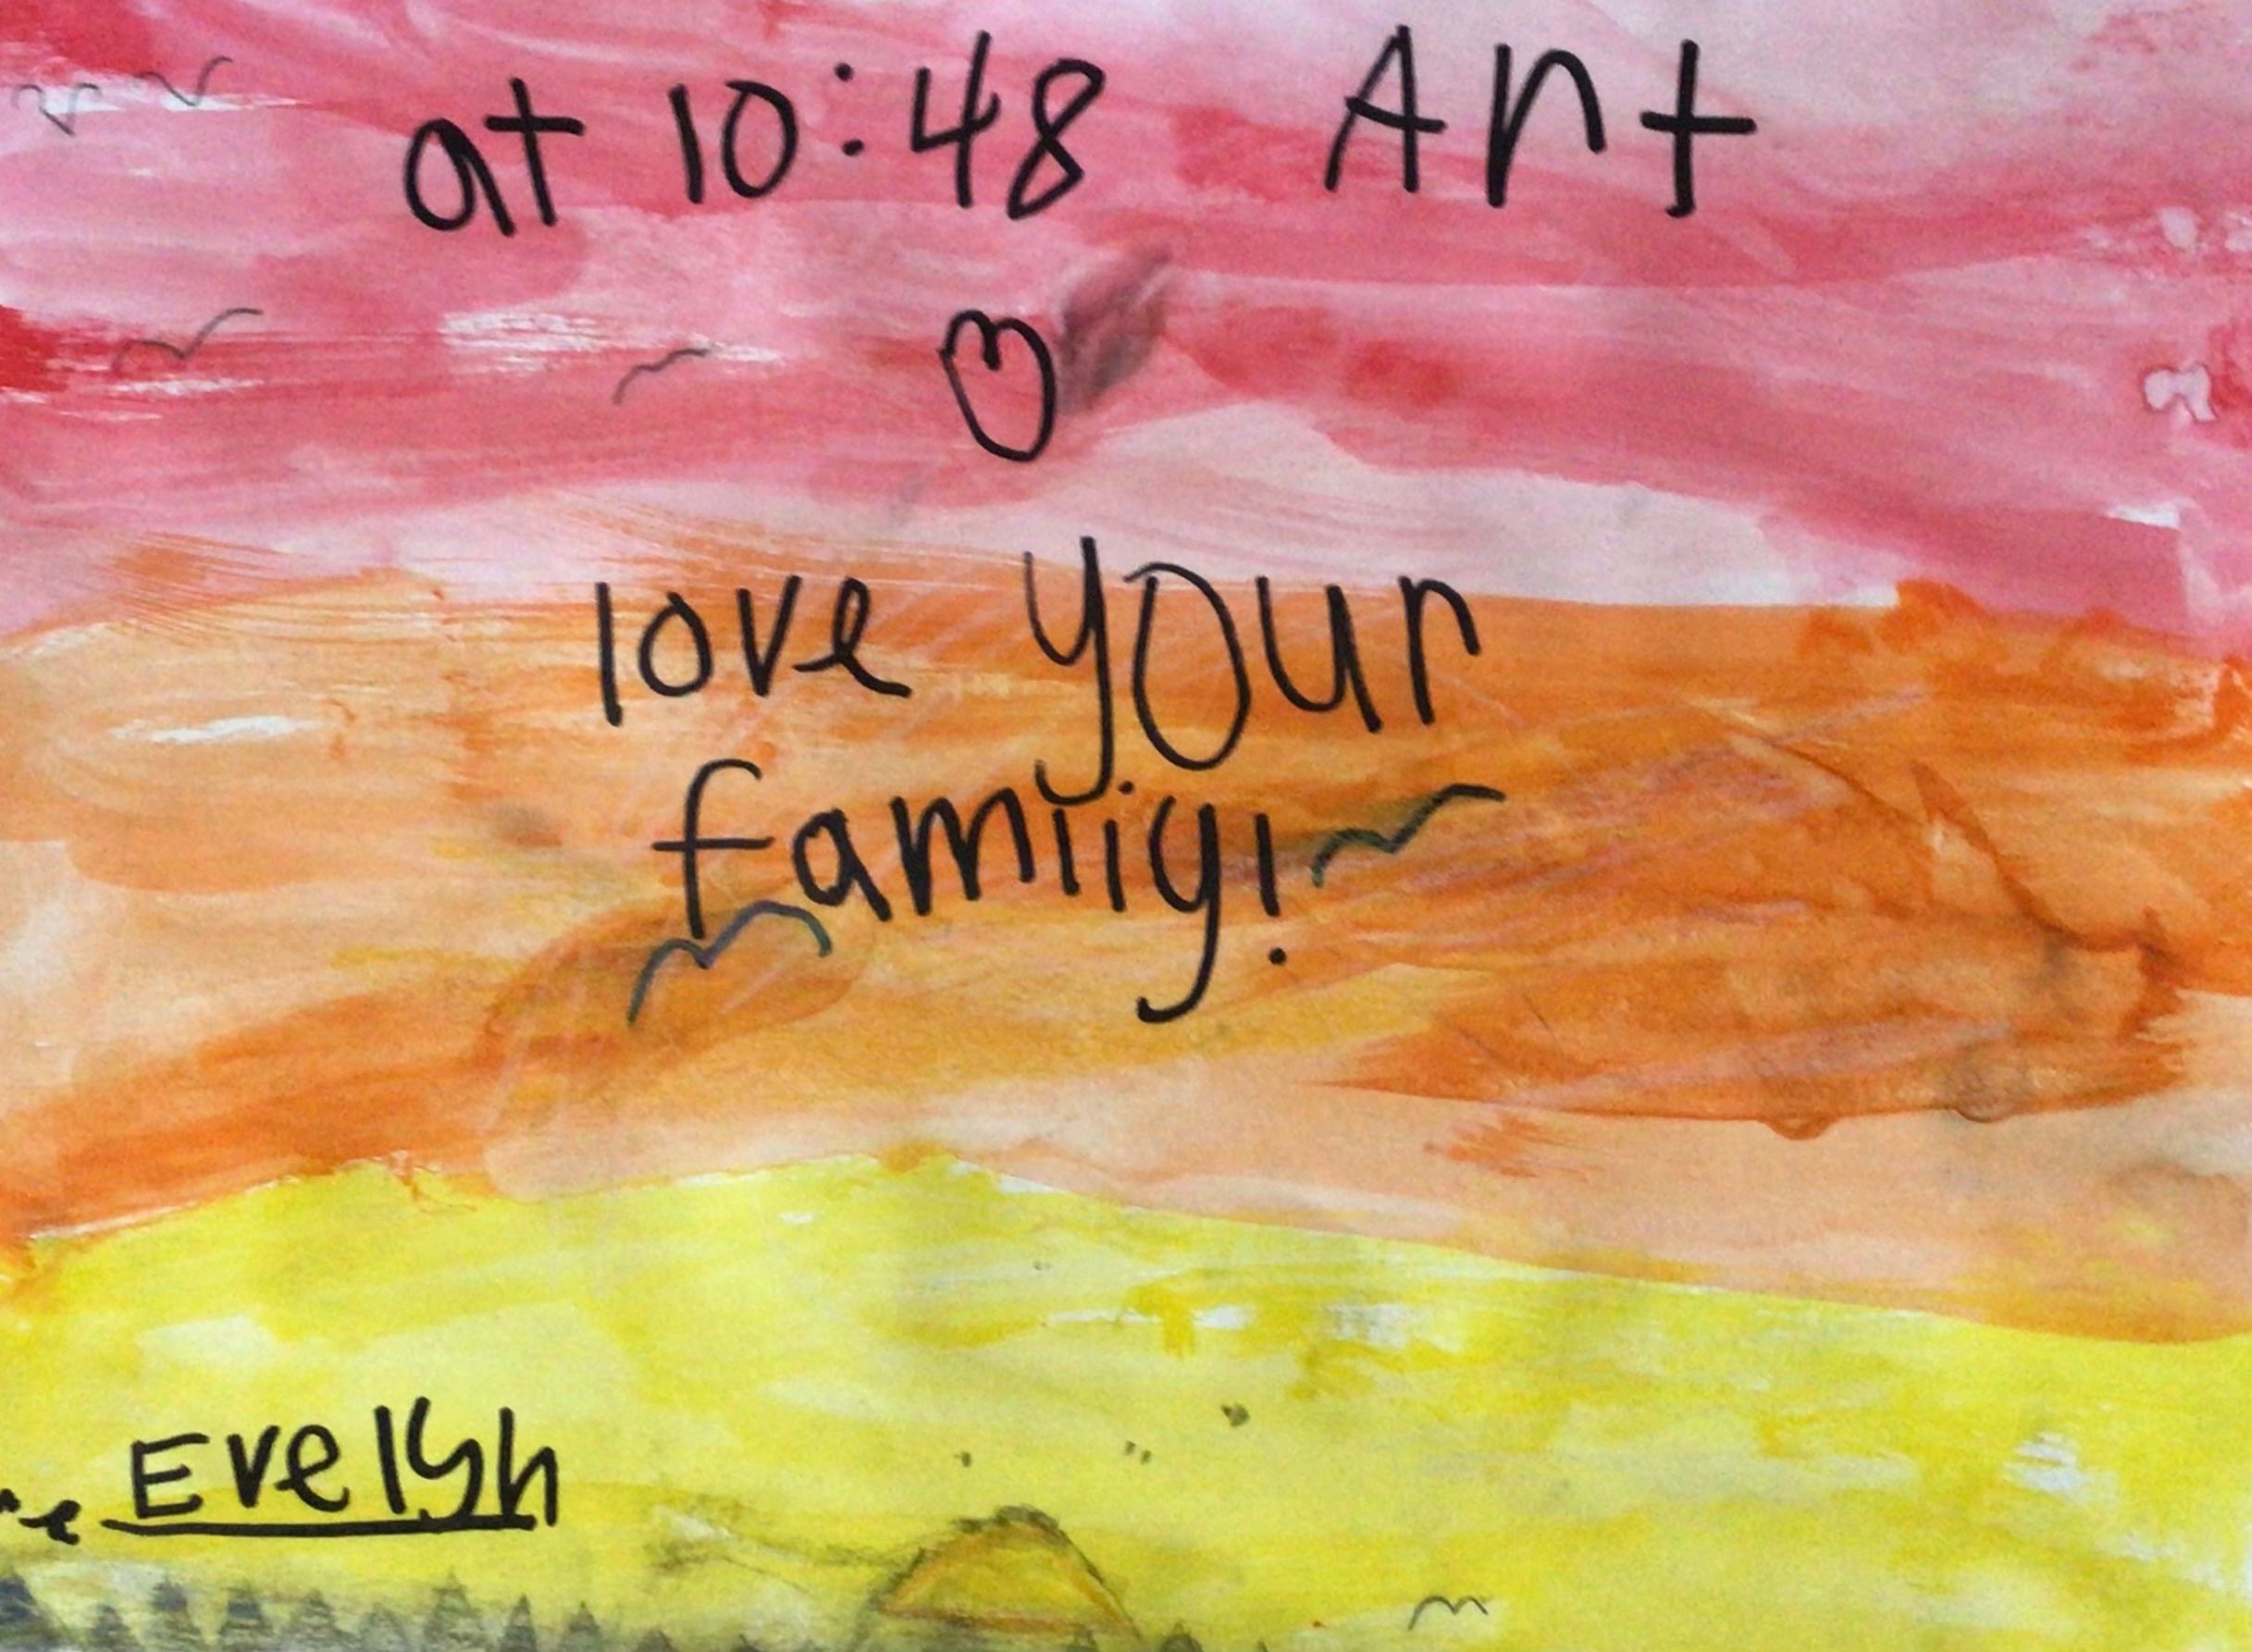 at 10:48 Art
love your
famiiy!
Evelyn